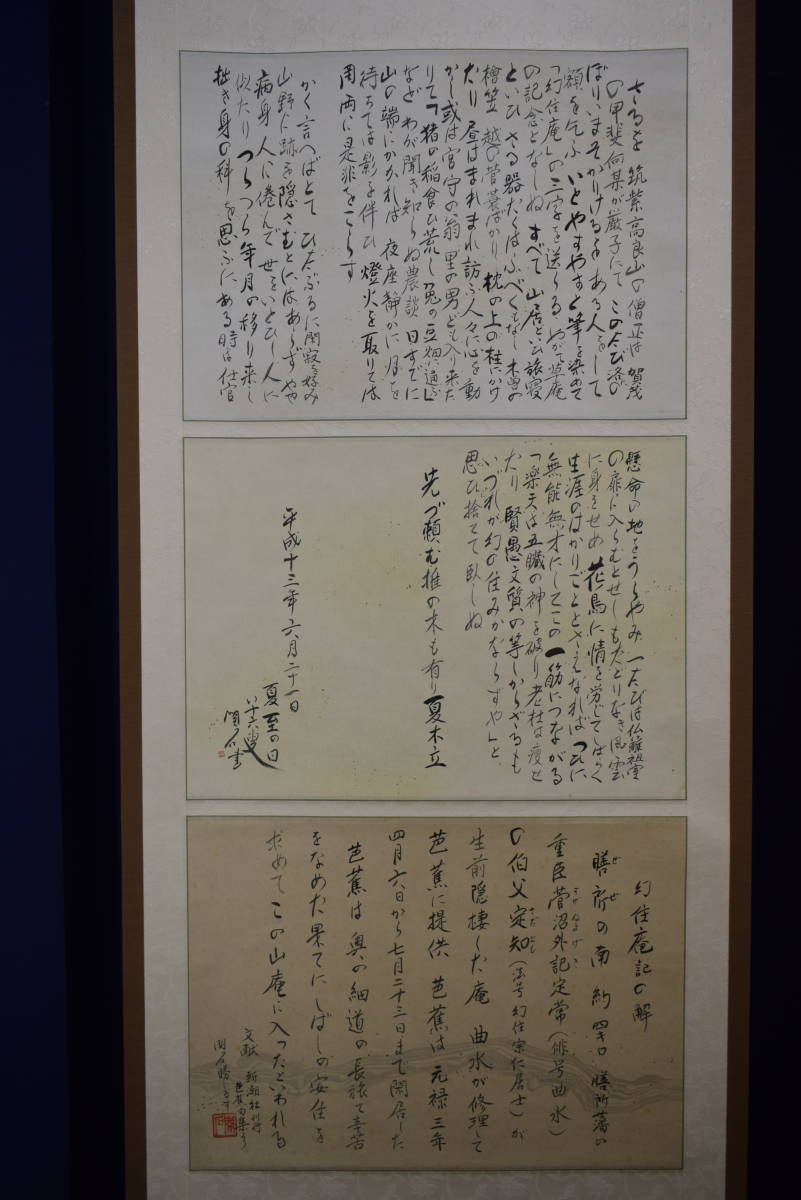 さるを 筑紫高良山の僧正は 賀茂
の甲斐何某が厳子にて このたび洛に
のぼりいまそかりけるを ある人をして
額を乞ふ いとやすやすと筆を染めて
「幻住庵」の三字を送らる やがて草庵
の記念となしぬ すべて 山居といひ旅寝
といひ さる器たくはふべくもなし 木曽の
檜笠 越の菅蓑ばかり 枕の上の柱にかけ
たり 昼はまれまれ訪ふ人々に心を動
かし 或は宮守の翁 里の男ども入り来た
りて「猪の稲食ひ荒し 兎の豆畑に通ふ」
など わが聞き知らぬ農談 日すでに
山の端にかかれば 夜座静かに 月を
待ちては影を伴ひ 燈火を取りては
罔両に是非をこらす
かく言へばとて ひたぶるに閑寂を好み
山野に跡を隠さむとにはあらず やや
病身 人に倦んで 世をいとひし人に
似たり つらつら年月の移り来し
拙き身の科を思ふに ある時は 仕官
懸命の地をうらやみ 一たびは 仏籬祖室
の扉に入らむとせしも たどりなき風雲
に身をせめ 花鳥に情を労じて しばらく
生涯のはかりごととさへなれば つひに
無能無才にしてこの一筋につながる
「楽天は五臓の神を破り 老杜は痩せ
たり 賢愚文質の等しからざるも
いづれか幻の住みかならずや」と
思ひ捨てて臥しぬ
先づ頼む椎の木も有り夏木立
平成十三年六月二十一日
夏至の日
八十六叟
幻住庵記の解
膳所の南 約四キロ 膳所藩の
ぜぜ
重臣菅沼外記定常(俳号曲水)
の伯父定知(法号 幻住宗仁居士)が
生前隠棲した庵 曲水が修理して
芭蕉に提供 芭蕉は 元禄三年
四月六日から七月二十三日まで閑居した
芭蕉は 奥の細道の長旅で辛苦
をなめた果てに しばしの安住を
求めて この山庵に入ったといわれる
文献 新潮社刊行
芭蕉句集より